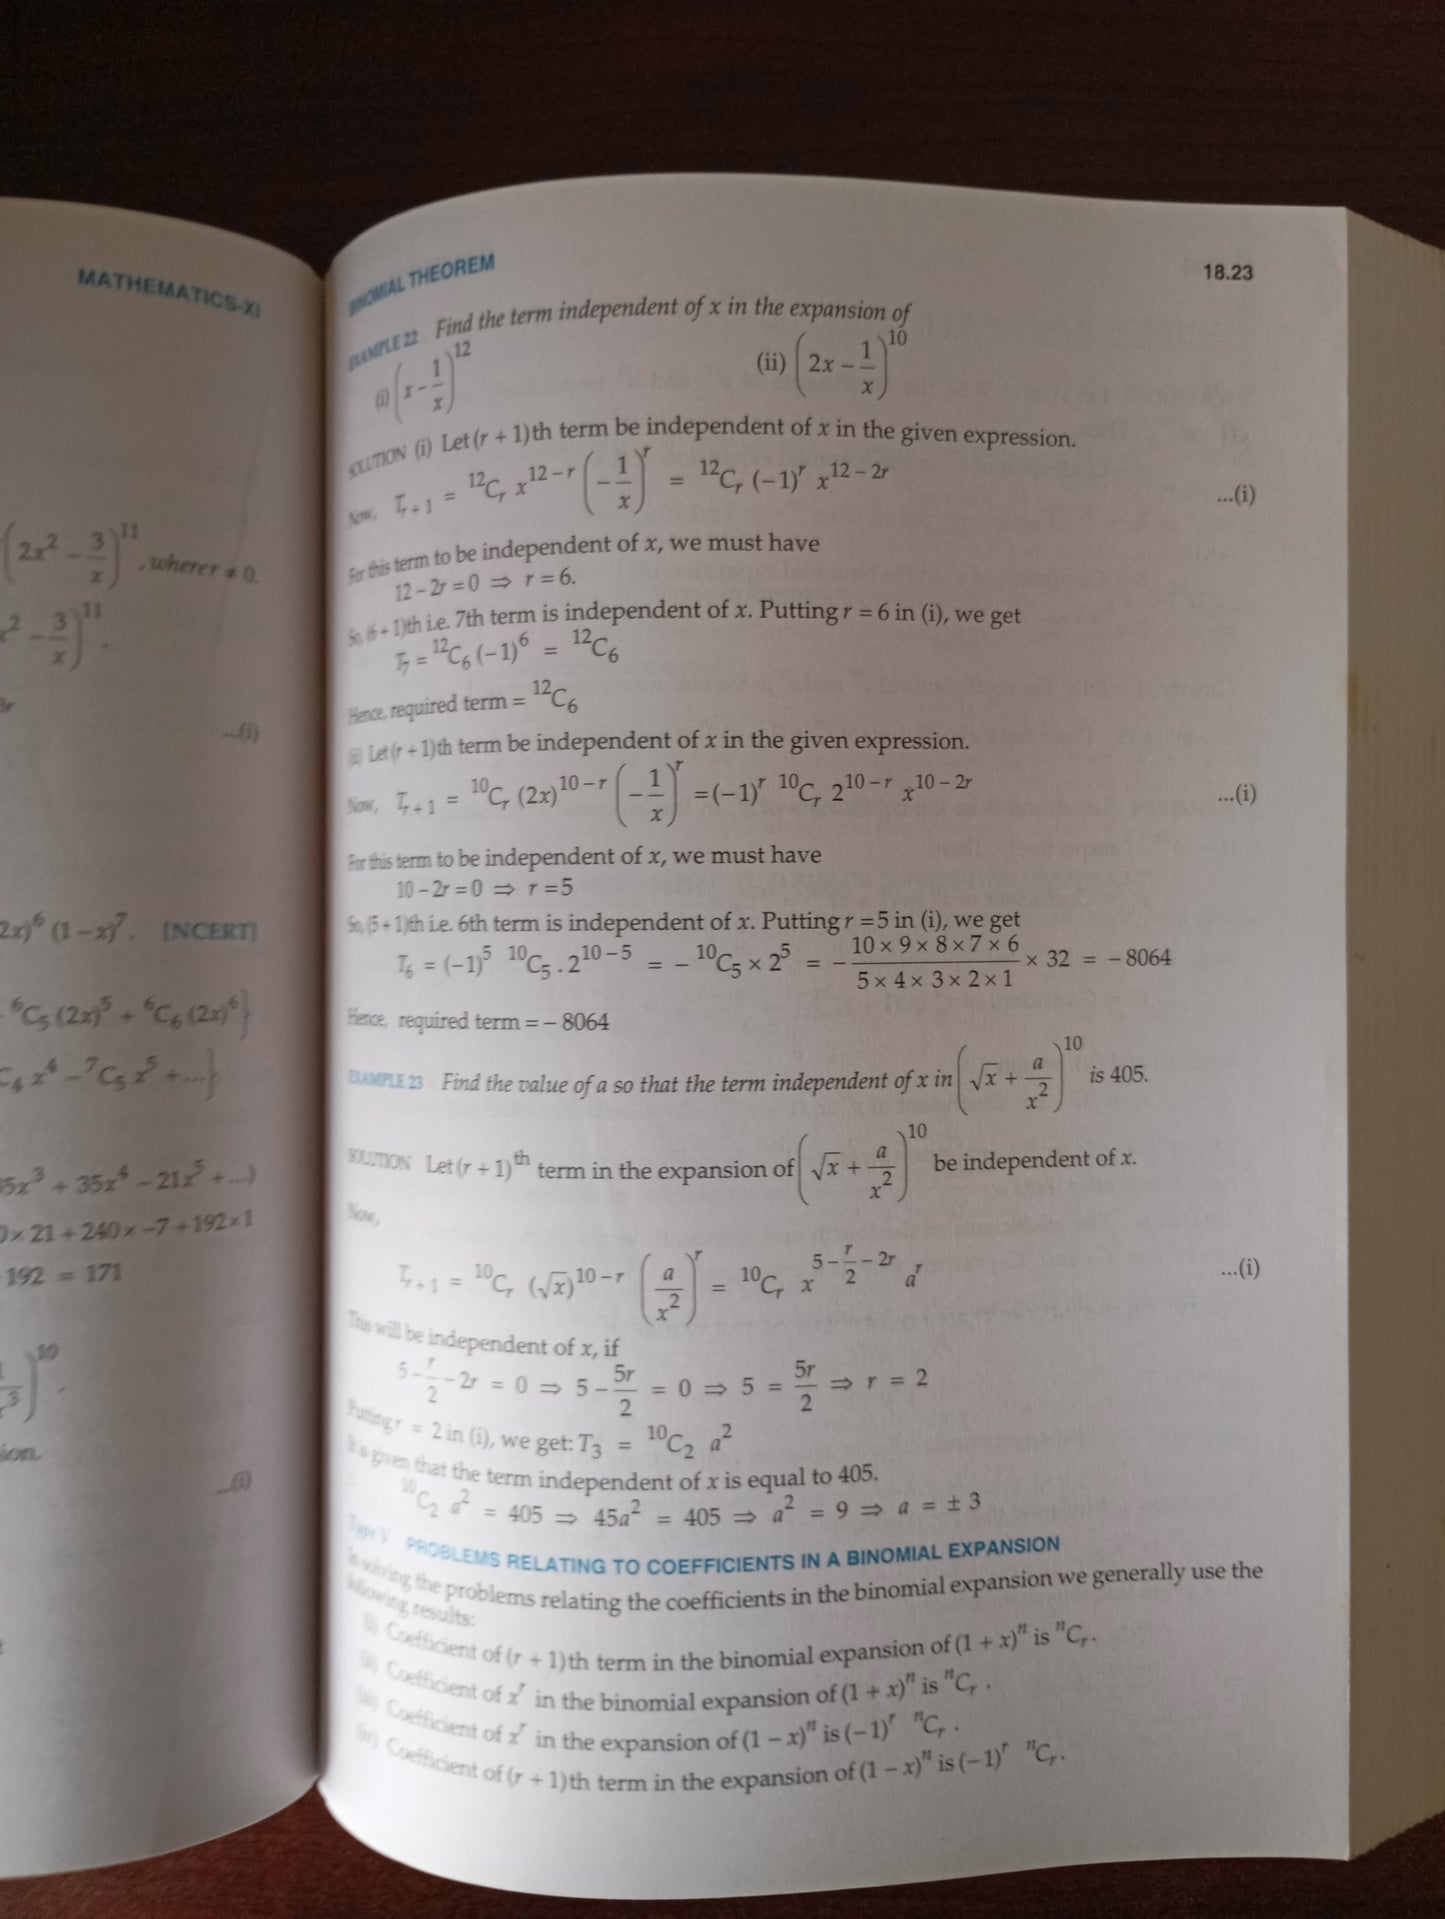 MATHEMATICS-XI
(2x² − 3/x)¹¹, where r ≠ 0.
x² − 3/x)¹¹.
...(i)
2x)⁶ (1 − x)⁷. [NCERT]
⁶C₅ (2x)⁵ + ⁶C₆ (2x)⁶}
C₄ x⁴ − ⁷C₅ x⁵ + ...}
5x³ + 35x⁴ − 21x⁵ + ...)
0 × 21 + 240 × −7 + 192 × 1
192 = 171
)¹⁰
ion.
...(i)
BINOMIAL THEOREM 18.23
EXAMPLE 22 Find the term independent of x in the expansion of
(i) (x − 1/x)¹² (ii) (2x − 1/x)¹⁰
SOLUTION (i) Let (r + 1)th term be independent of x in the given expression.
Now, Tᵣ₊₁ = ¹²Cᵣ x¹²⁻ʳ (−1/x)ʳ = ¹²Cᵣ (−1)ʳ x¹²⁻²ʳ ...(i)
For this term to be independent of x, we must have
12 − 2r = 0 ⇒ r = 6.
So, (6 + 1)th i.e. 7th term is independent of x. Putting r = 6 in (i), we get
T₇ = ¹²C₆ (−1)⁶ = ¹²C₆
Hence, required term = ¹²C₆
(ii) Let (r + 1)th term be independent of x in the given expression.
Now, Tᵣ₊₁ = ¹⁰Cᵣ (2x)¹⁰⁻ʳ (−1/x)ʳ = (−1)ʳ ¹⁰Cᵣ 2¹⁰⁻ʳ x¹⁰⁻²ʳ ...(i)
For this term to be independent of x, we must have
10 − 2r = 0 ⇒ r = 5
So, (5 + 1)th i.e. 6th term is independent of x. Putting r = 5 in (i), we get
T₆ = (−1)⁵ ¹⁰C₅ . 2¹⁰⁻⁵ = − ¹⁰C₅ × 2⁵ = − (10 × 9 × 8 × 7 × 6)/(5 × 4 × 3 × 2 × 1) × 32 = − 8064
Hence, required term = − 8064
EXAMPLE 23 Find the value of a so that the term independent of x in (√x + a/x²)¹⁰ is 405.
SOLUTION Let (r + 1)ᵗʰ term in the expansion of (√x + a/x²)¹⁰ be independent of x.
Now,
Tᵣ₊₁ = ¹⁰Cᵣ (√x)¹⁰⁻ʳ (a/x²)ʳ = ¹⁰Cᵣ x^(5 − r/2 − 2r) aʳ ...(i)
This will be independent of x, if
5 − r/2 − 2r = 0 ⇒ 5 − 5r/2 = 0 ⇒ 5 = 5r/2 ⇒ r = 2
Putting r = 2 in (i), we get: T₃ = ¹⁰C₂ a²
It is given that the term independent of x is equal to 405.
¹⁰C₂ a² = 405 ⇒ 45a² = 405 ⇒ a² = 9 ⇒ a = ± 3
Type V PROBLEMS RELATING TO COEFFICIENTS IN A BINOMIAL EXPANSION
In solving the problems relating the coefficients in the binomial expansion we generally use the
following results:
(i) Coefficient of (r + 1)th term in the binomial expansion of (1 + x)ⁿ is ⁿCᵣ.
(ii) Coefficient of xʳ in the binomial expansion of (1 + x)ⁿ is ⁿCᵣ.
(iii) Coefficient of xʳ in the expansion of (1 − x)ⁿ is (−1)ʳ ⁿCᵣ.
(iv) Coefficient of (r + 1)th term in the expansion of (1 − x)ⁿ is (−1)ʳ ⁿCᵣ.